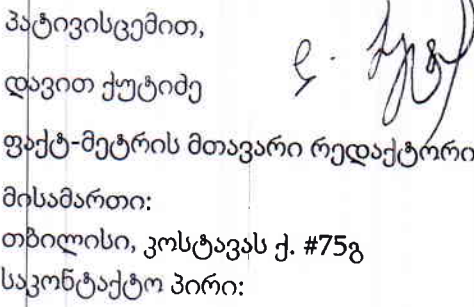 პატივისცემით,
დავით ქუტიძე
ფაქტ-მეტრის მთავარი რედაქტორი
მისამართი:
თბილისი, კოსტავას ქ. #75გ
საკონტაქტო პირი: